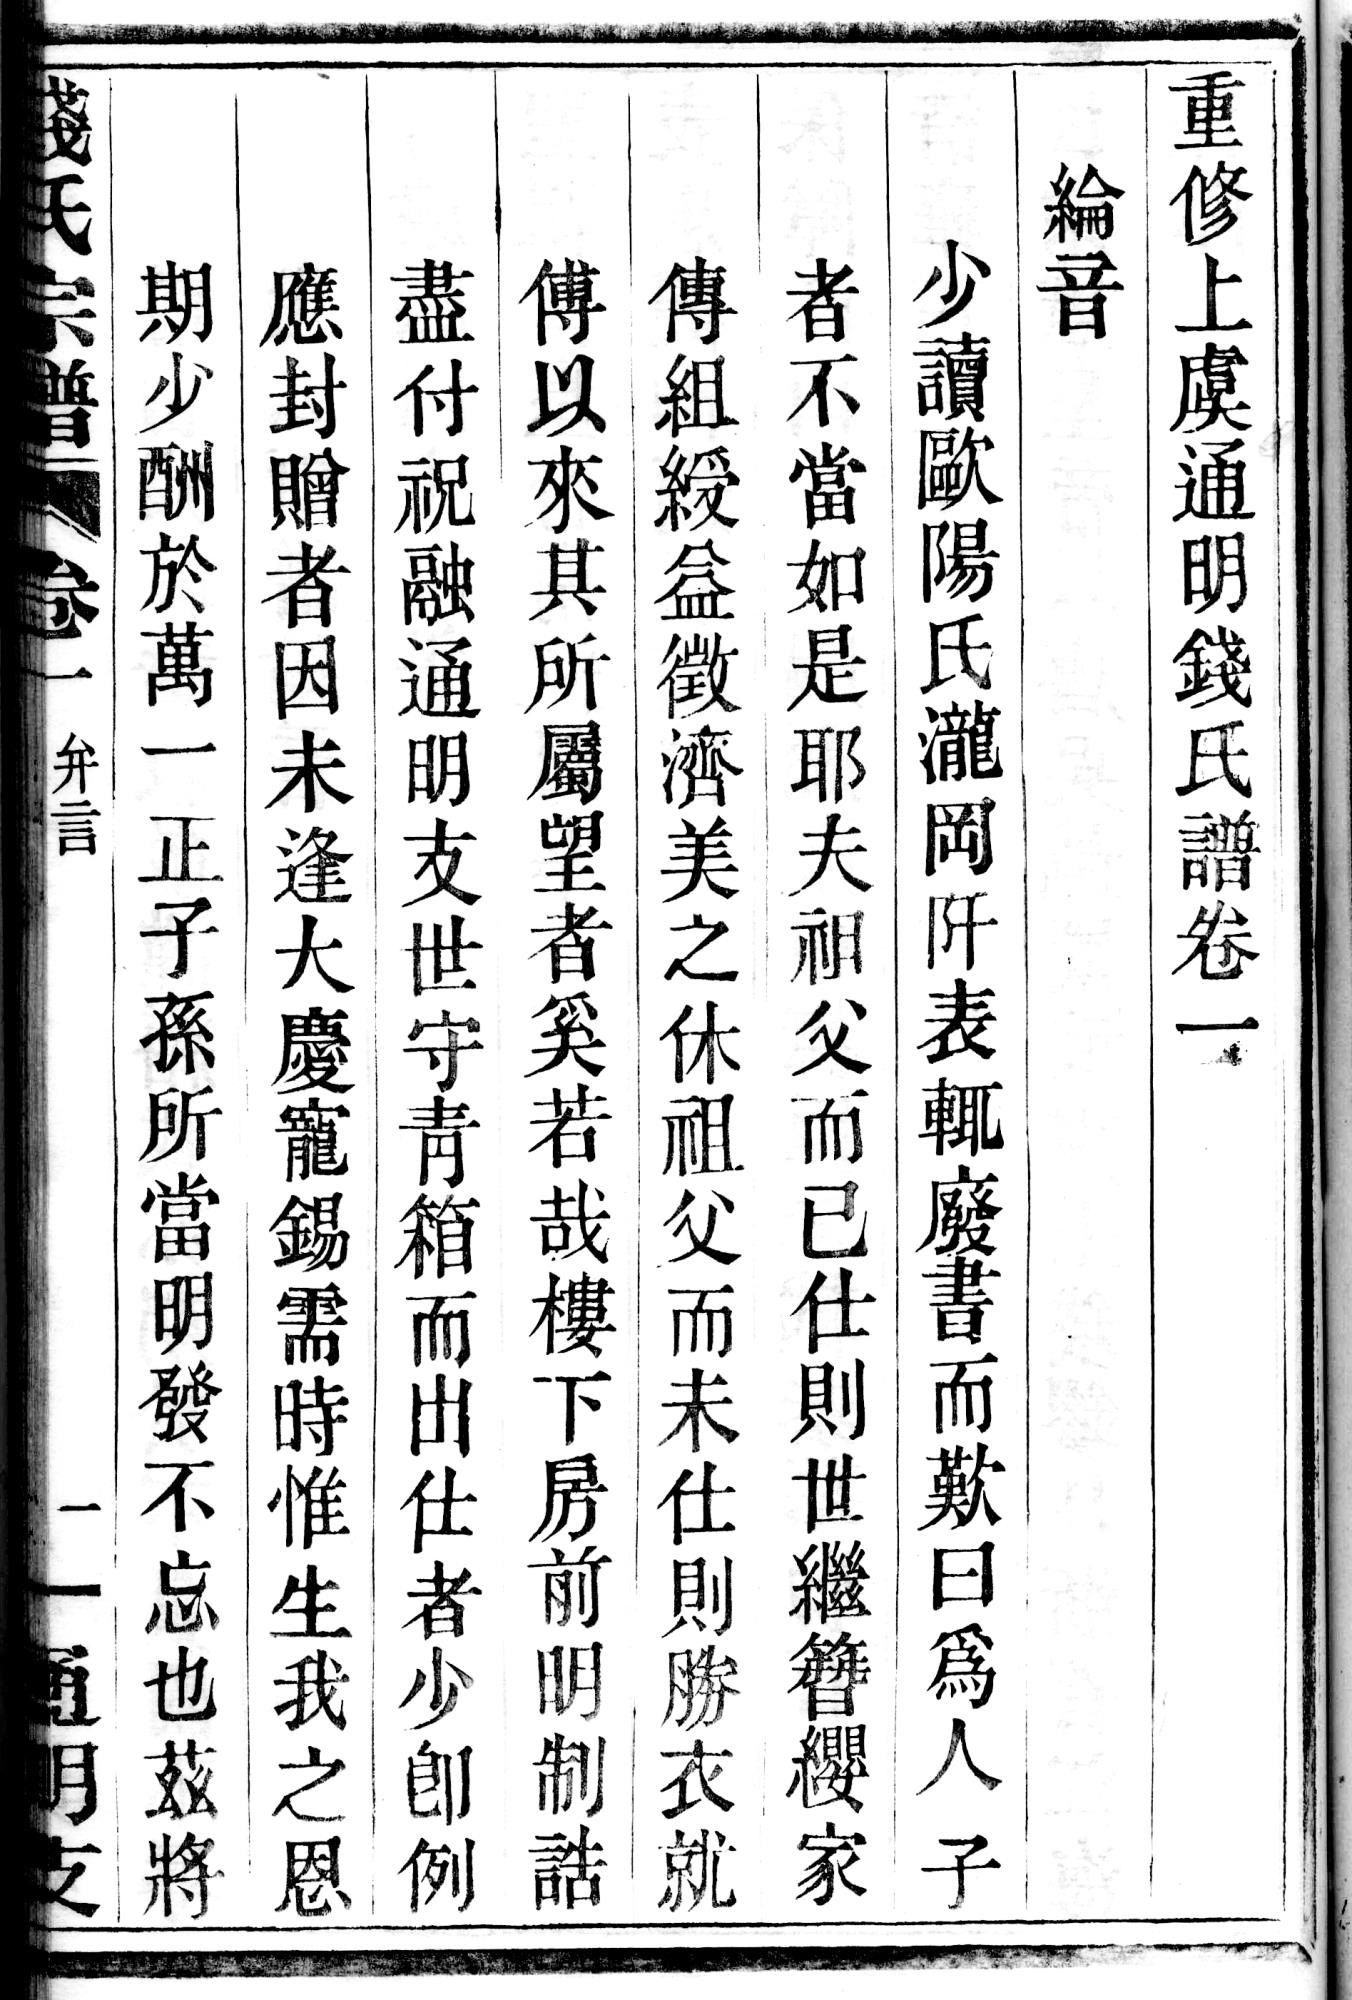 重修上虞通明錢氏譜卷一
綸音
少讀歐陽氏瀧岡阡表輒廢書而歎曰為人子
者不當如是耶夫祖父而已仕則世繼簪纓家
傳組綬益徵濟美之休祖父而未仕則勝衣就
傅以來其所屬望者奚若哉樓下房前明制誥
盡付祝融通明支世守青箱而出仕者少卽例
應封贈者因未逢大慶寵錫需時惟生我之恩
期少酬於萬一正子孫所當明發不忘也茲將
錢氏宗譜 卷一 弁言 一 一 通明支